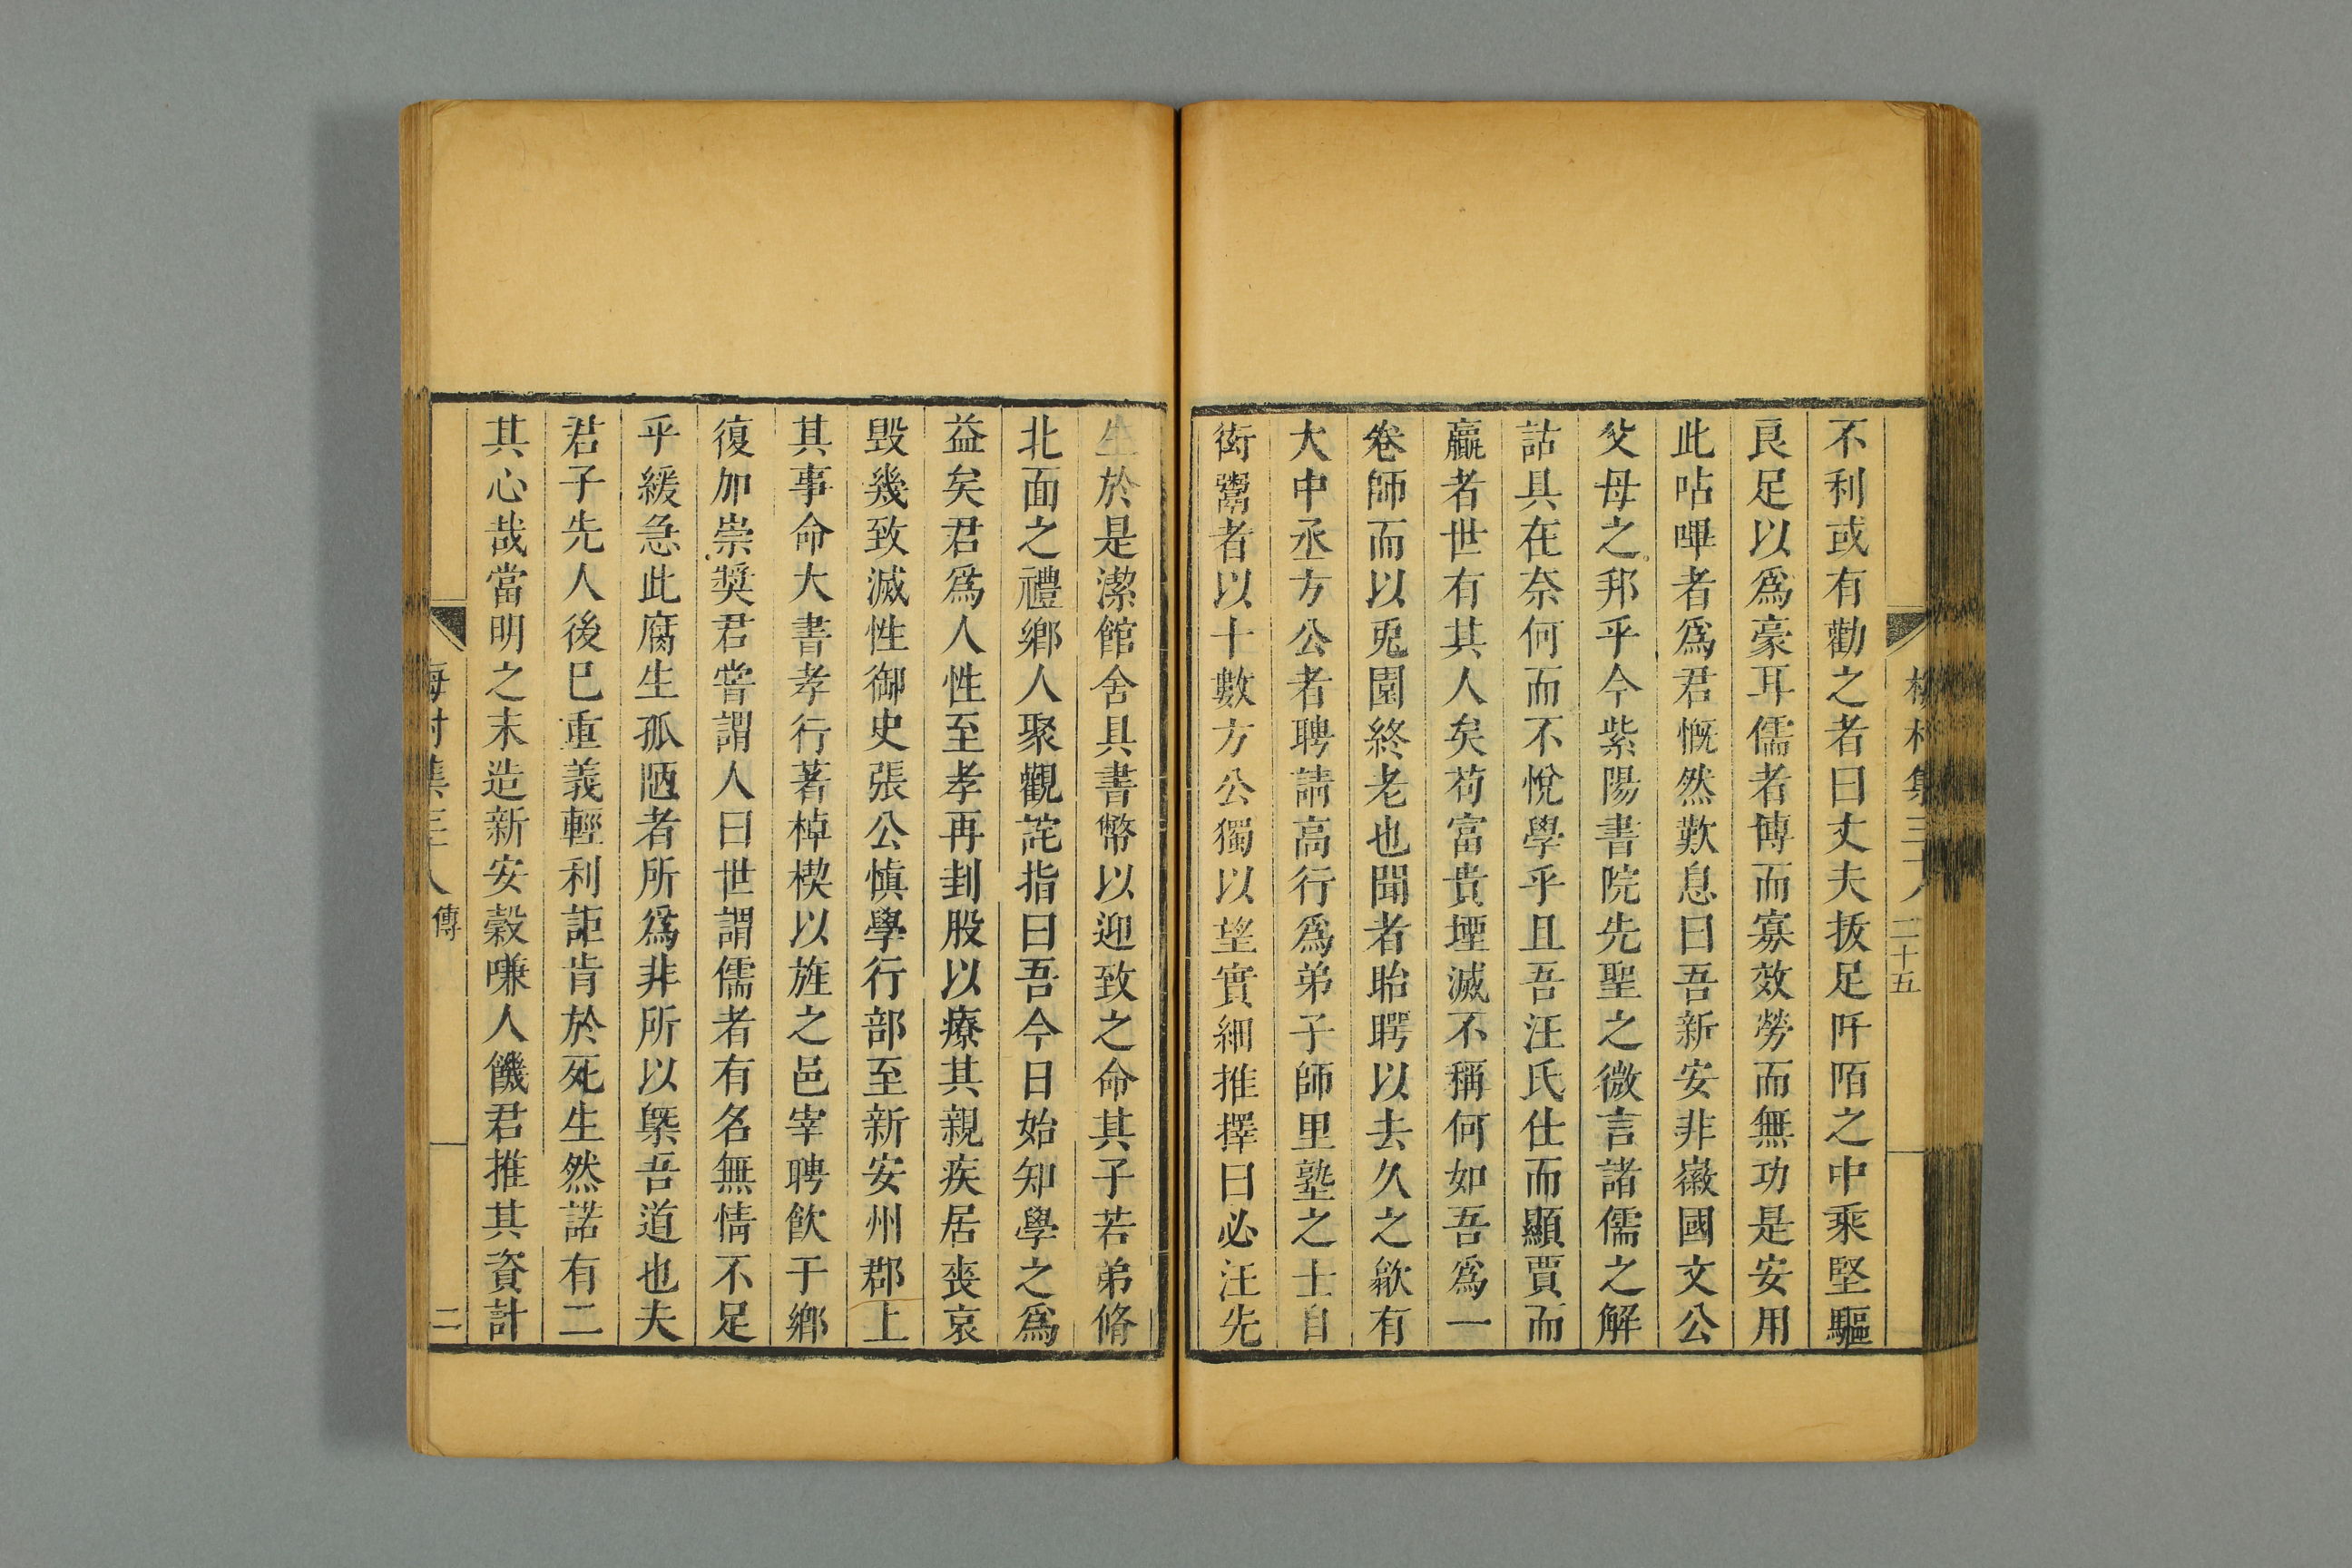 不利或有勸之者曰丈夫拔足阡陌之中乘堅驅
良足以爲豪耳儒者博而寡效勞而無功是安用
此呫嗶者爲君慨然歎息曰吾新安非徽國文公
父母之邦乎今紫陽書院先聖之微言諸儒之解
詁具在奈何而不悅學乎且吾汪氏仕而顯賈而
贏者世有其人矣苟富貴堙滅不稱何如吾爲一
卷師而以兎園終老也聞者眙愕以去久之歙有
大中丞方公者聘請高行爲弟子師里塾之士自
衒鬻者以十數方公獨以望實細推擇曰必汪先
生於是潔館舍具書幣以迎致之命其子若弟脩
北面之禮鄉人聚觀詫指曰吾今日始知學之爲
益矣君爲人性至孝再刲股以療其親疾居喪哀
毀幾致滅性御史張公愼學行部至新安州郡上
其事命大書孝行著棹楔以旌之邑宰聘飲于鄉
復加崇奬君嘗謂人曰世謂儒者有名無情不足
乎緩急此腐生孤陋者所爲非所以槩吾道也夫
君子先人後已重義輕利詎肯於死生然諾有二
其心哉當明之末造新安穀嗛人饑君推其資計
梅村集三十八 傳 二
二十五